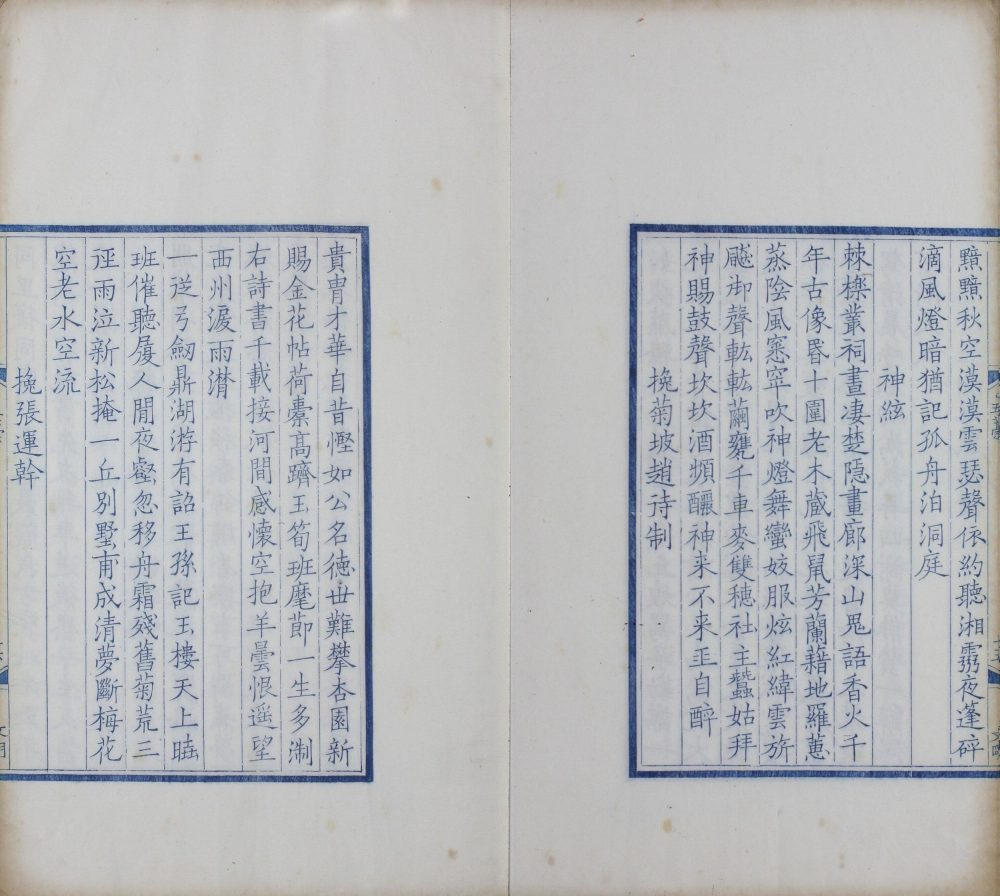 黯黯秋空漠漠雲瑟聲依約聽湘靈夜蓬碎
滴風燈暗猶記孤舟泊洞庭
神絃
棘欒叢祠晝凄楚隱畫廊深山鬼語香火千
年古像昏十圍老木藏飛鼠芳蘭藉地羅蕙
蒸陰風窸窣吹神燈舞蠻妓服炫紅緯雲旂
飈御聲軩軩繭甕千車麥雙穗社主蠶姑拜
神賜鼓聲坎坎酒頻釃神来不来巫自醉
挽菊坡趙待制
貴胄才華自昔慳如公名德世難攀杏園新
賜金花帖荷橐髙躋玉筍班麾節一生多淛
右詩書千載接河間感懷空抱羊曇恨遥望
西州淚雨潸
一從弓劒鼎湖游有詔王孫記玉樓天上曉
班催聽履人間夜壑忽移舟霜殘舊菊荒三
逕雨泣新松掩一丘别墅甫成清夢斷梅花
空老水空流
挽張運幹